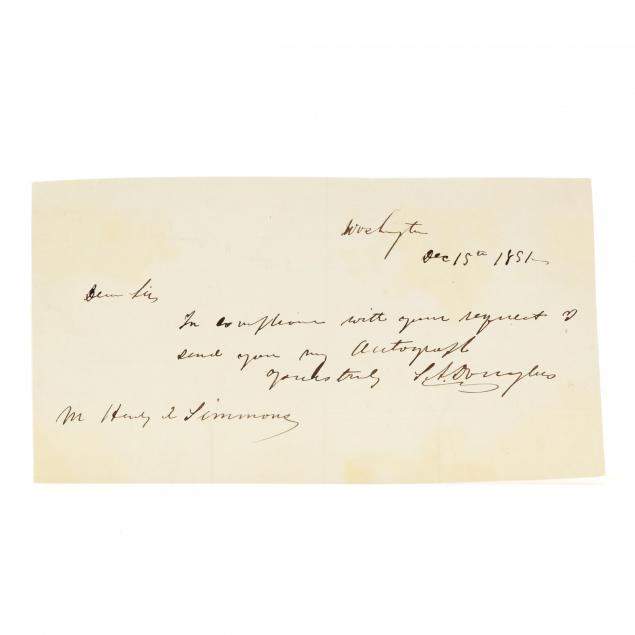 Washington
Dec 15th 1851
Dear Sir
In compliance with your request I
send you my Autograph
yours truly S. A. Douglas
Mr Henry Simmons